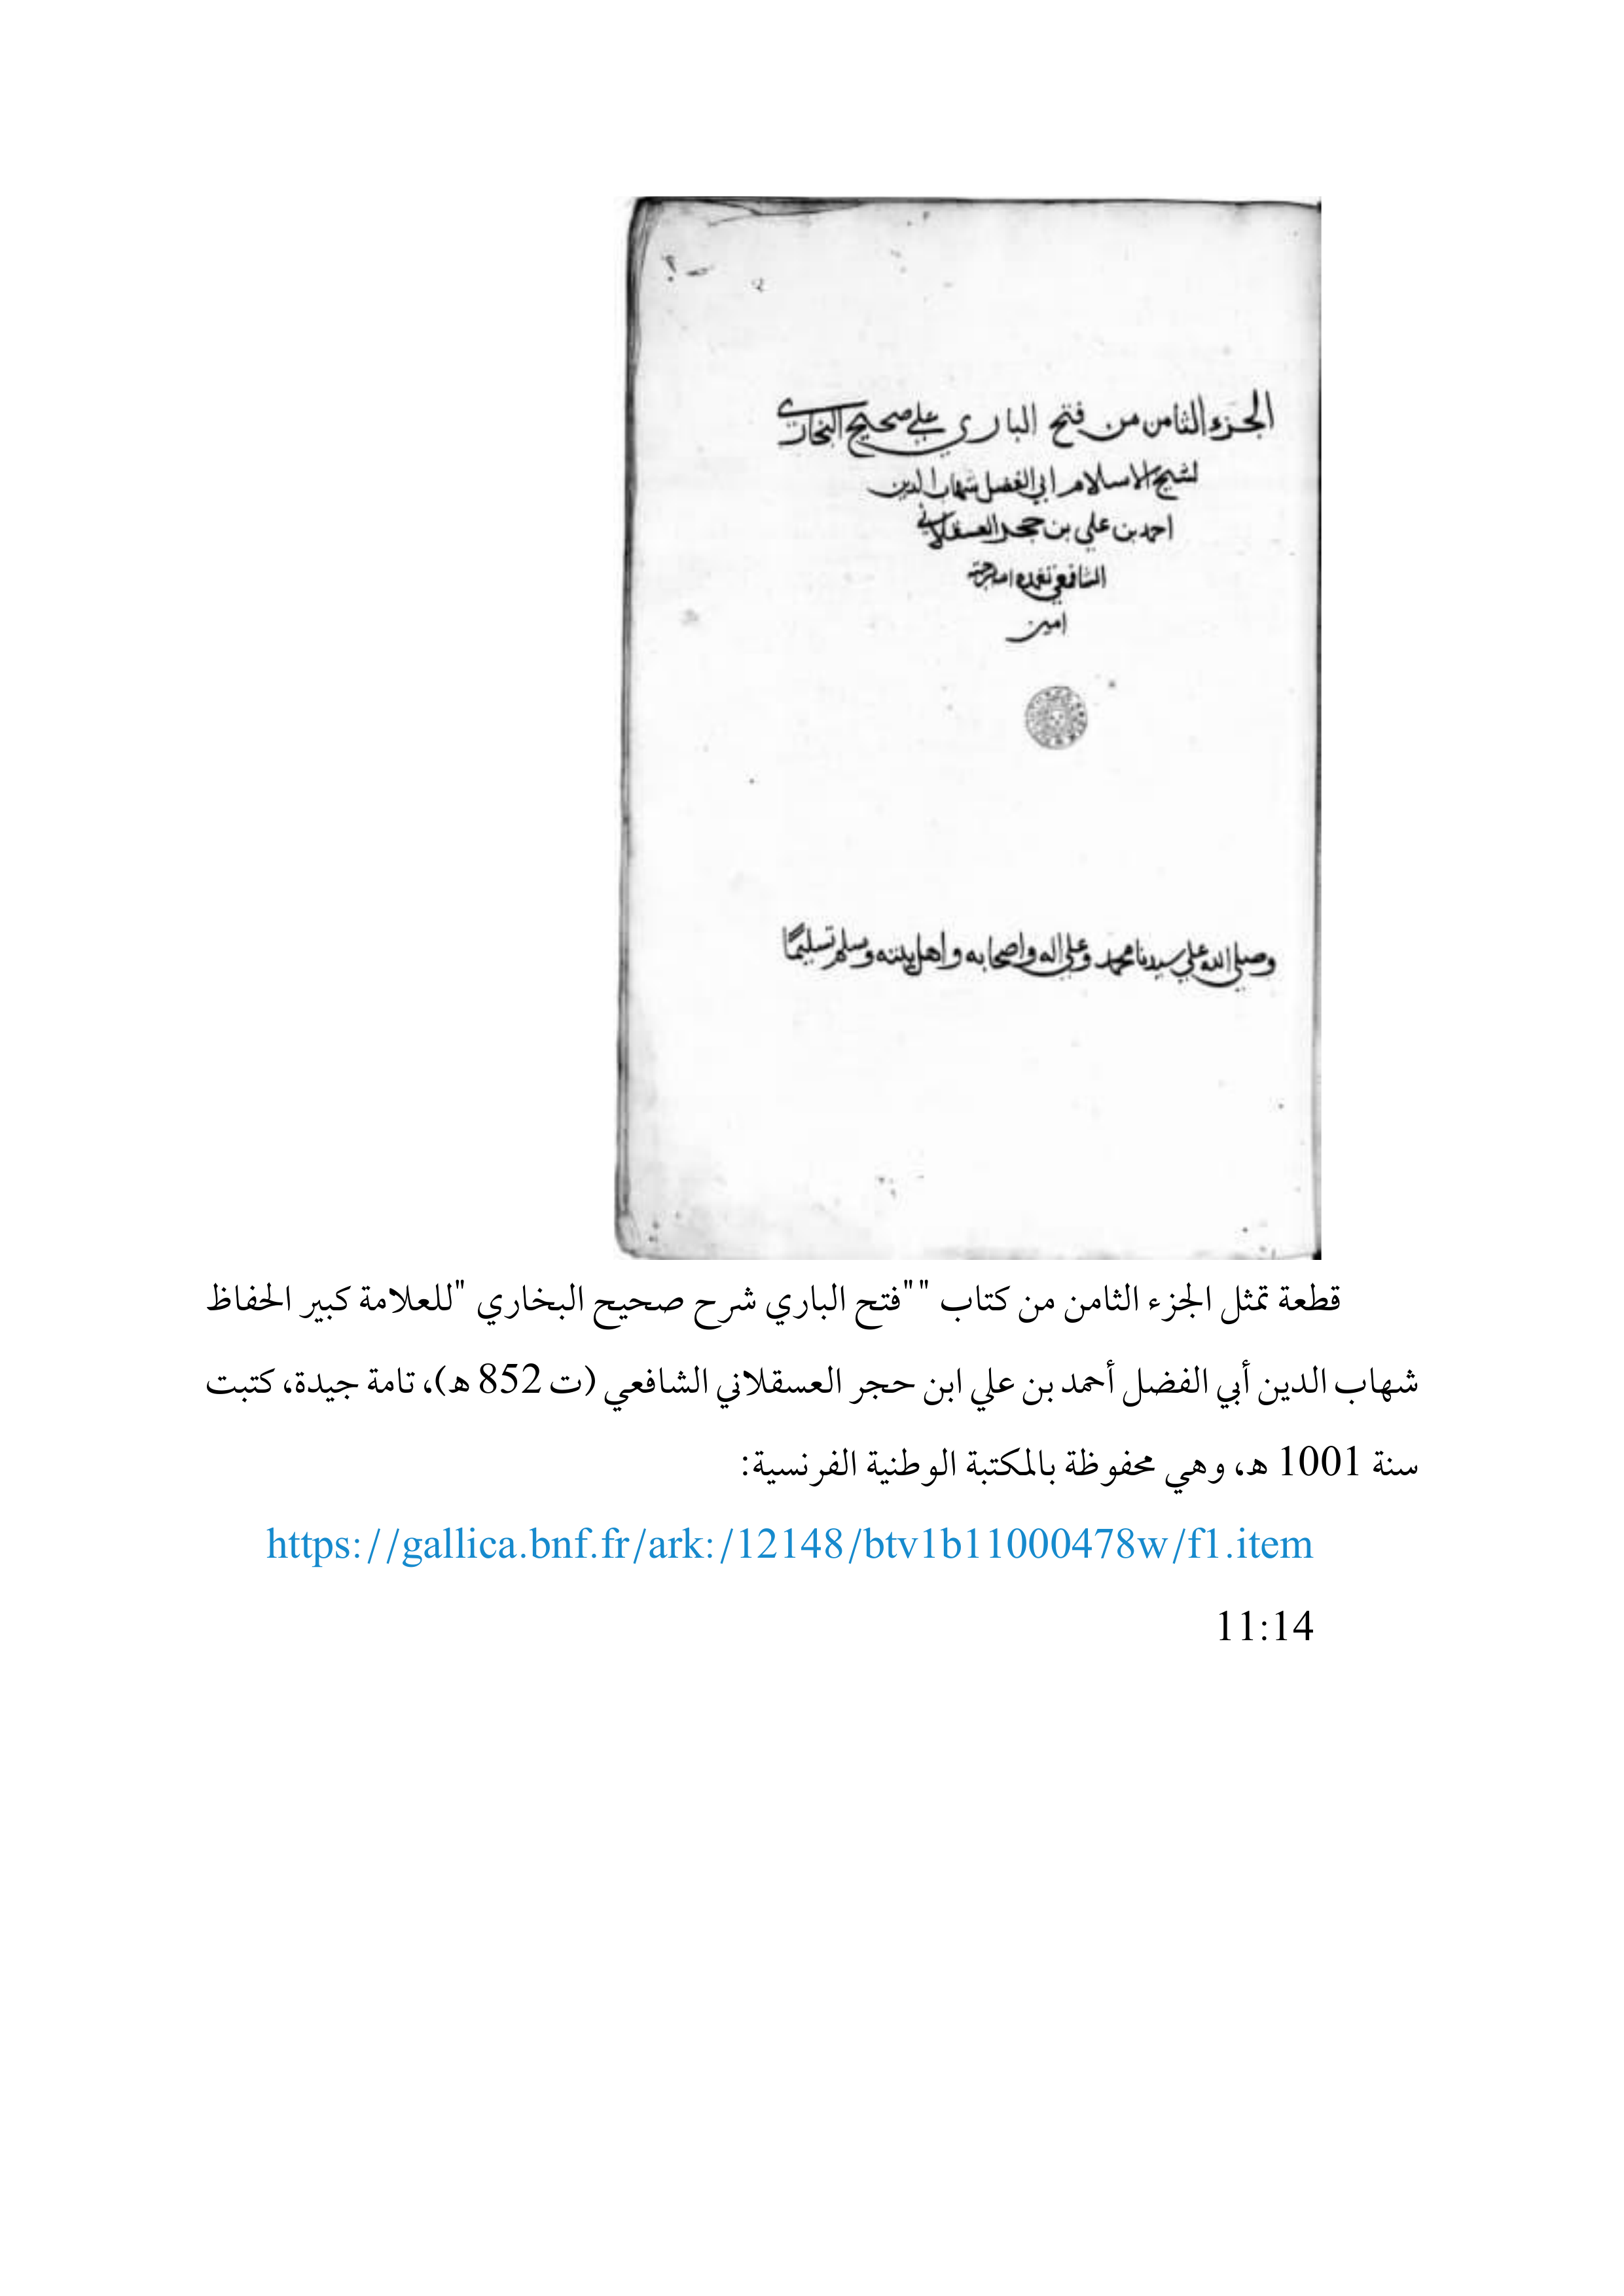 الجزء الثامن من فتح الباري علي صحيح البخاري
لشيخ الاسلام ابي الفضل شهاب الدين
احمد بن علي بن حجر العسقلاني
الشافعي تغمده الله برحمته
امين
وصلي الله علي سيدنا محمد وعلي اله واصحابه واهل بيته وسلم تسليمًا
قطعة تمثل الجزء الثامن من كتاب ""فتح الباري شرح صحيح البخاري "للعلامة كبير الحفاظ
شهاب الدين أبي الفضل أحمد بن علي ابن حجر العسقلاني الشافعي (ت 852 هـ)، تامة جيدة، كتبت
سنة 1001 هـ، وهي محفوظة بالمكتبة الوطنية الفرنسية:
https://gallica.bnf.fr/ark:/12148/btv1b11000478w/f1.item
11:14